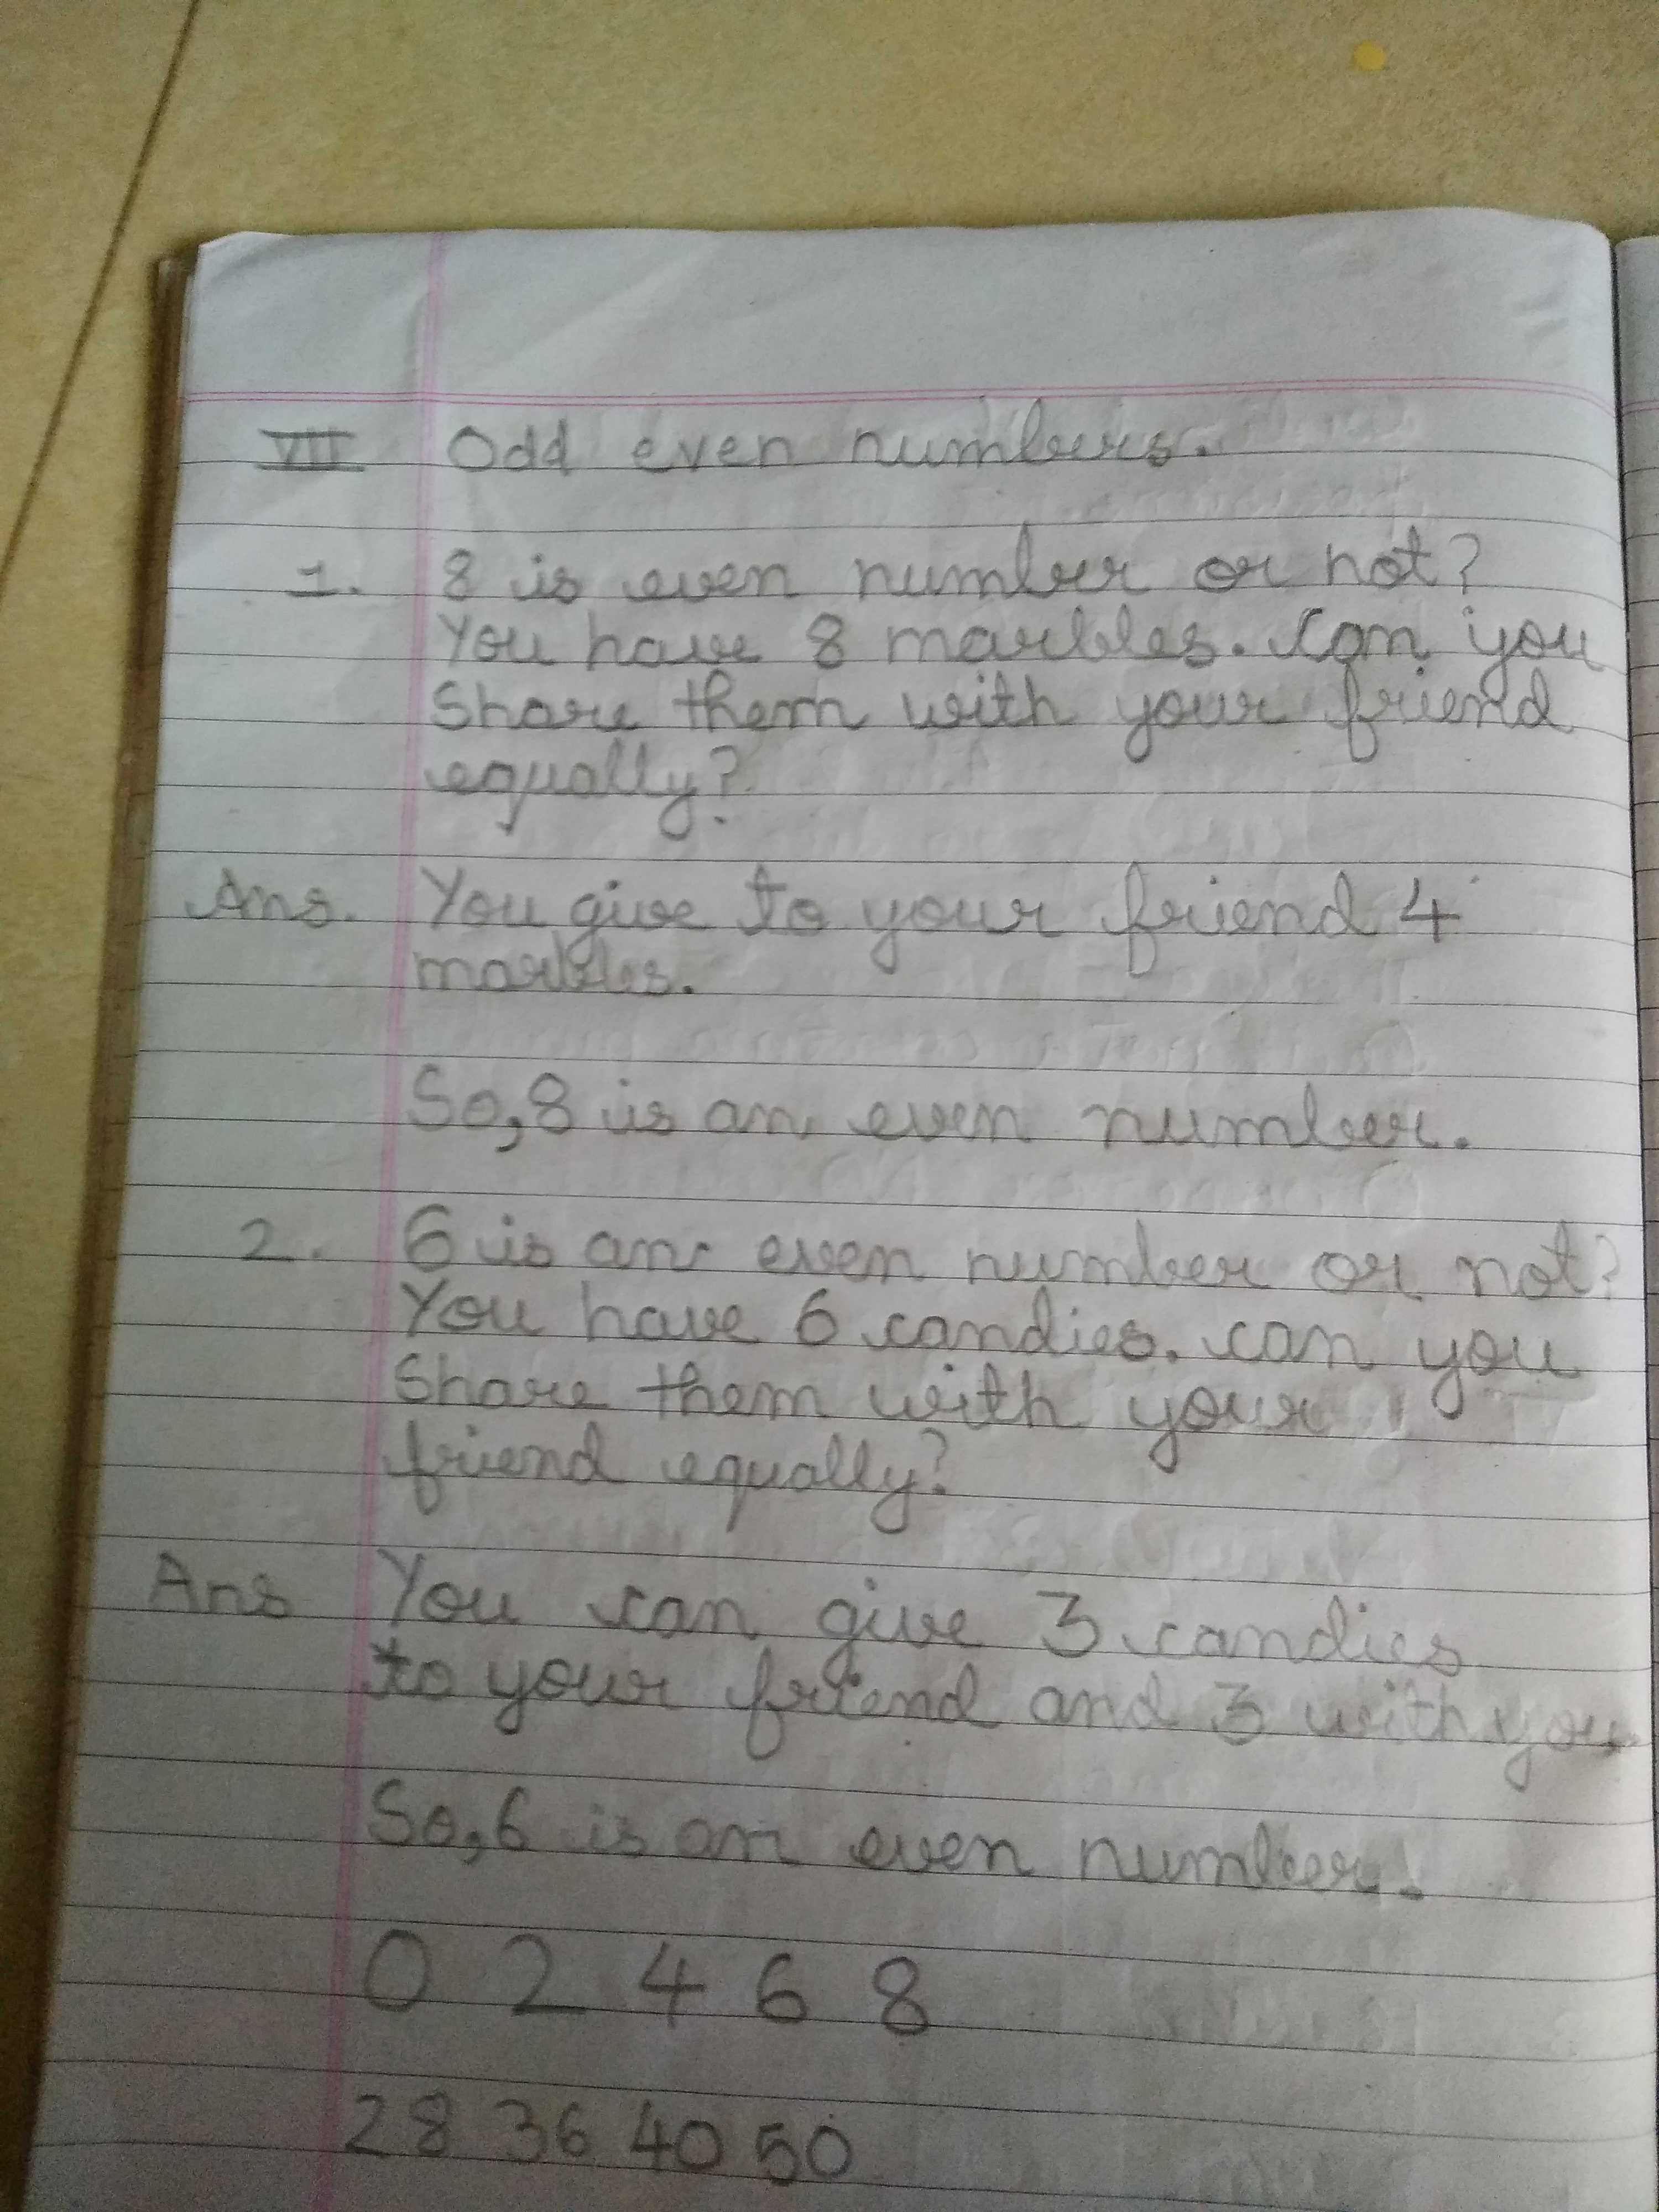 VII Odd even numbers.
1. 8 is even number or not?
You have 8 marbles. Can you
Share them with your friend
equally?
Ans. You give to your friend 4
marbles.
So, 8 is an even number.
2. 6 is an even number or not?
You have 6 candies. can you
Share them with your
friend equally?
Ans You can give 3 candies
to your friend and 3 with you
So, 6 is an even number.
0 2 4 6 8
28 36 40 50